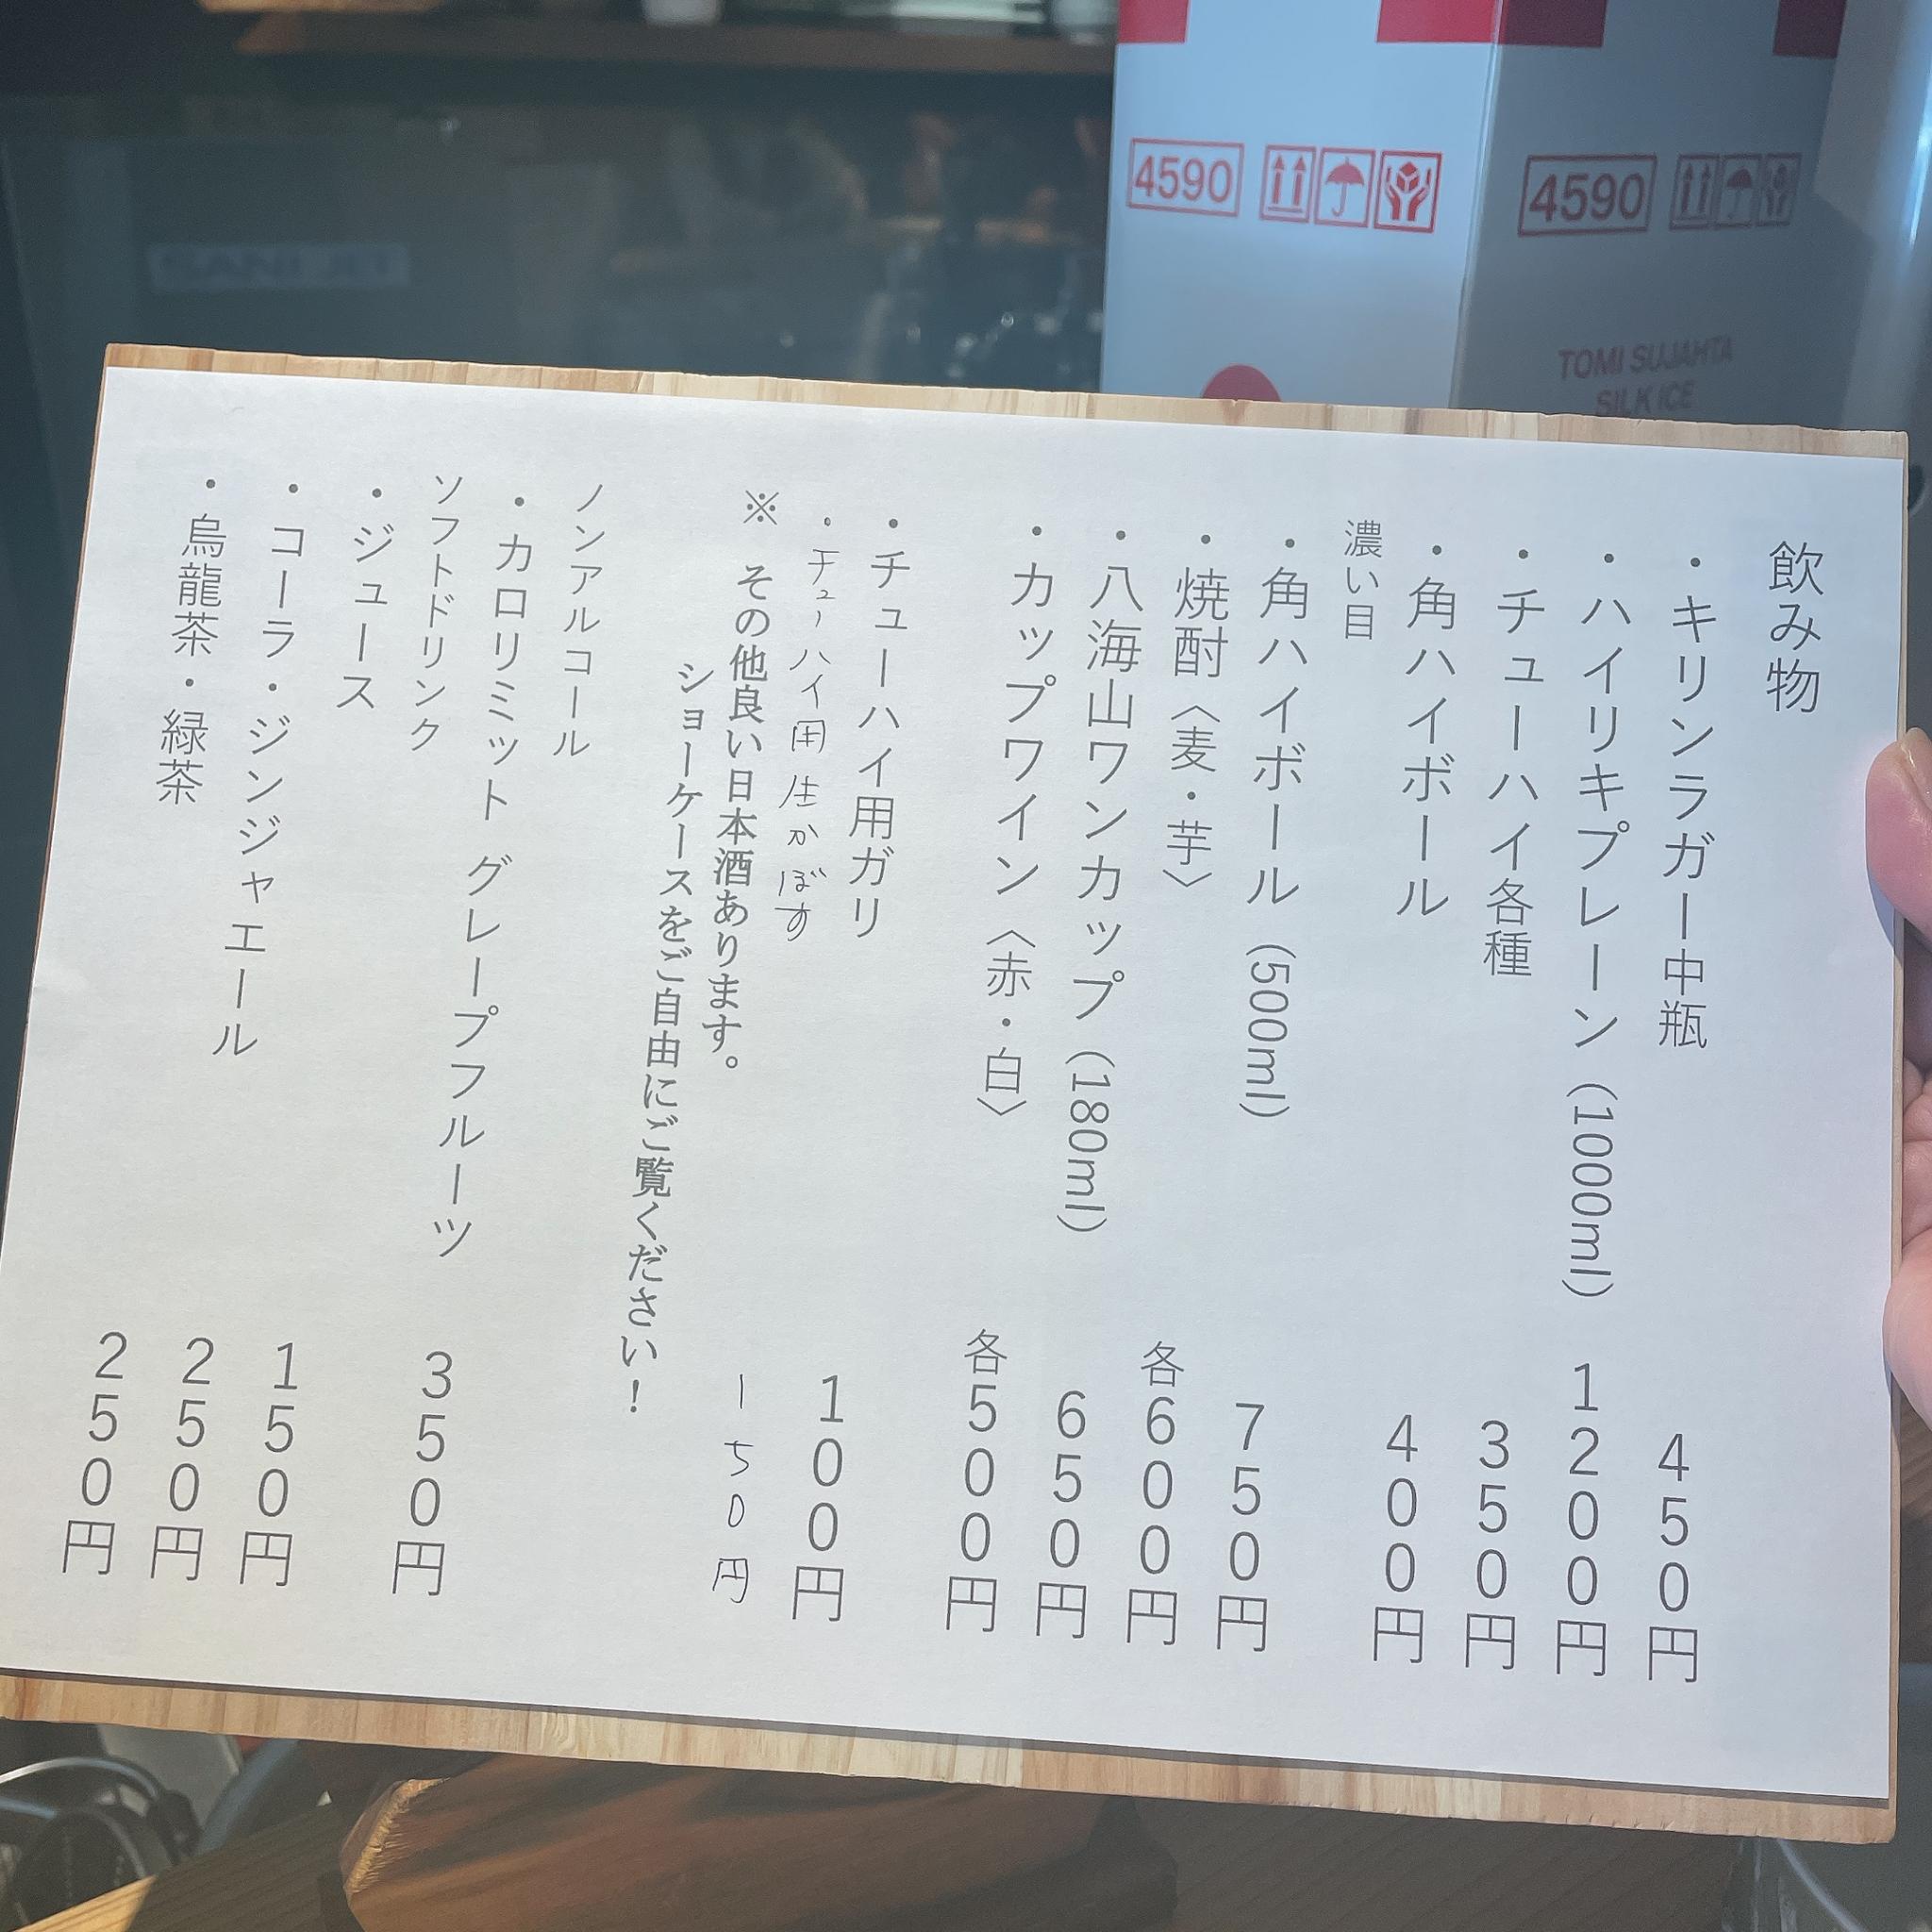 飲み物
・キリンラガー中瓶 450円
・ハイリキプレーン（1000ml） 1200円
・チューハイ各種 350円
・角ハイボール 400円
濃い目
・角ハイボール（500ml） 750円
・焼酎〈麦・芋〉 各600円
・八海山ワンカップ（180ml） 650円
・カップワイン〈赤・白〉 各500円
・チューハイ用ガリ 100円
・チューハイ用生かぼす 150円
※ その他良い日本酒あります。
ショーケースをご自由にご覧ください！
ノンアルコール
・カロリミット グレープフルーツ 350円
ソフトドリンク
・ジュース 150円
・コーラ・ジンジャエール 250円
・烏龍茶・緑茶 250円
4590
4590
TOMI SUJAHTA
SILK ICE
SANI JET